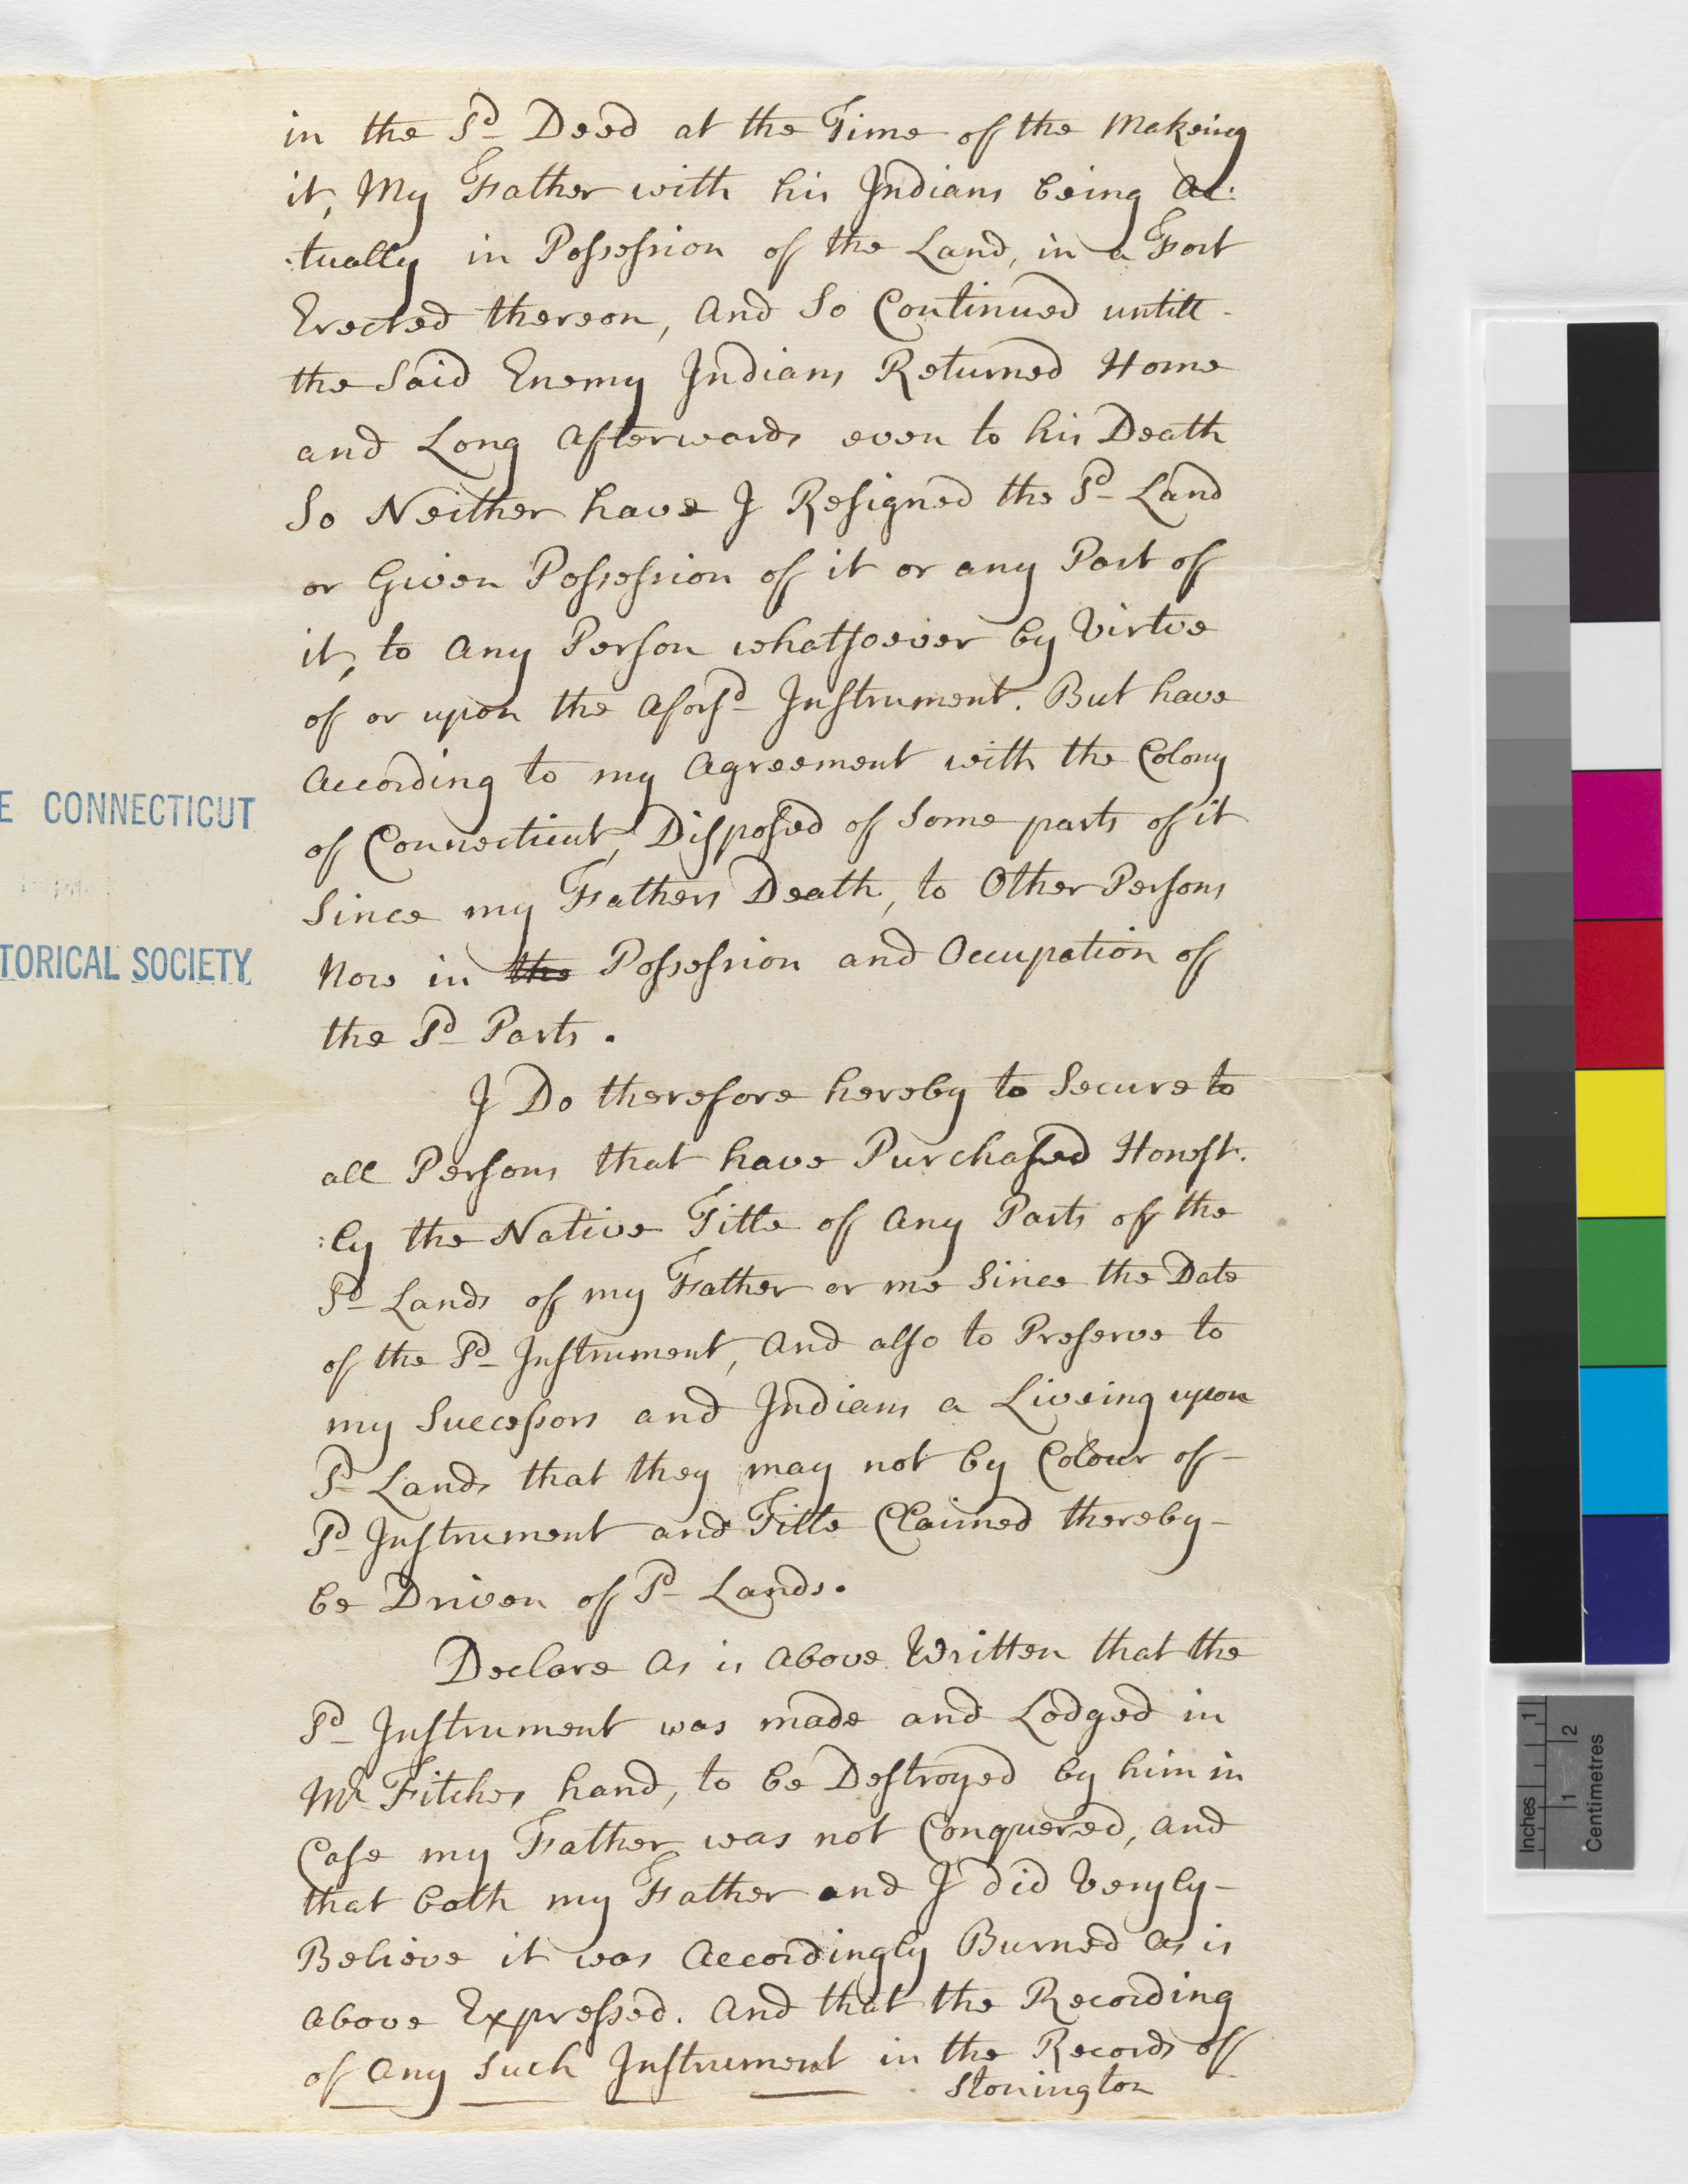 in the Sd Deed at the Time of the Makeing
it, My Father with his Indians being Ac:
:tually in Possession of the Land, in a Fort
Erected thereon, And So Continued untill -
the Said Enemy Indians Returned Home
and Long Afterwards even to his Death
So Neither have I Resigned the Sd Land
or Given Possession of it or any Part of
it, to Any Person whatsoever by Virtue
of or upon the Aforsd Instrument. But have
According to my Agreement with the Colony
of Connecticut, Disposed of Some parts of it
Since my Fathers Death, to Other Persons
Now in the Possession and Occupation of
the Sd Parts.
I Do therefore hereby to Secure to
all Persons that have Purchased Honest:
:ly the Native Title of Any Parts of the
Sd Lands of my Father or me Since the Date
of the Sd Instrument, And also to Preserve to
my Successors and Indians a Liveing upon
Sd Lands that they may not by Colour of -
Sd Instrument and Title Claimed thereby -
be Driven of Sd Lands.
Declare As is Above Written that the
Sd Instrument was made and Lodged in
Mr Fitches hand, to be Destroyed by him in
Case my Father was not Conquered, and
that both my Father and I did Veryly -
Believe it was Accordingly Burned as is
Above Expressed. And that the Recording
of Any Such Instrument in the Records of
Stonington
E CONNECTICUT
TORICAL SOCIETY
Inches 1
1 2
Centimetres